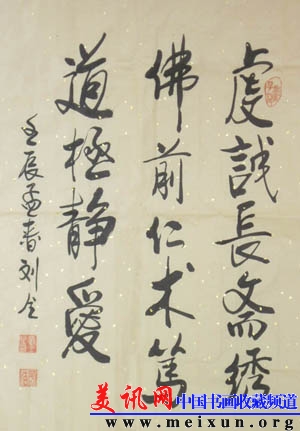 虔誠長齋綉
佛前仁术篤
道極靜愛
壬辰孟春刘仝
美讯网 中国书画收藏频道
www.meixun.org